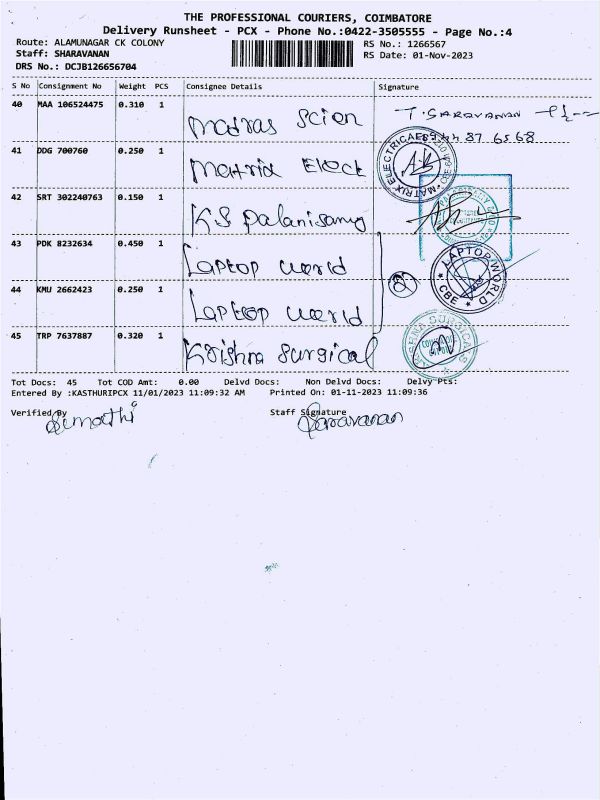 THE PROFESSIONAL COURIERS, COIMBATORE
Delivery Runsheet - PCX - Phone No.:0422-3505555 - Page No.:4
Route: ALAMUNAGAR CK COLONY
RS No.: 1266567
Staff: SHARAVANAN
RS Date: 01-Nov-2023
DRS No.: DCJB126656704
S No Consignment No Weight PCS Consignee Details Signature
40 MAA 106524475 0.310 1 Madras Scien T. SARAVANAN
41 DDG 700760 0.250 1 Matrix Elect
MATRIX ELECTRICAL
42 SRT 302240763 0.150 1 KS Palanisamy
43 PDK 8232634 0.450 1 Laptop world
LAPTOP WORLD
★ CBE ★
44 KMU 2662423 0.250 1 Laptop world
45 TRP 7637887 0.320 1 Krishna Surgical
Tot Docs: 45 Tot COD Amt: 0.00 Delvd Docs: Non Delvd Docs: Delvy Pts:
Entered By :KASTHURIPCX 11/01/2023 11:09:32 AM Printed On: 01-11-2023 11:09:36
Verified By Staff Signature
Saravanan